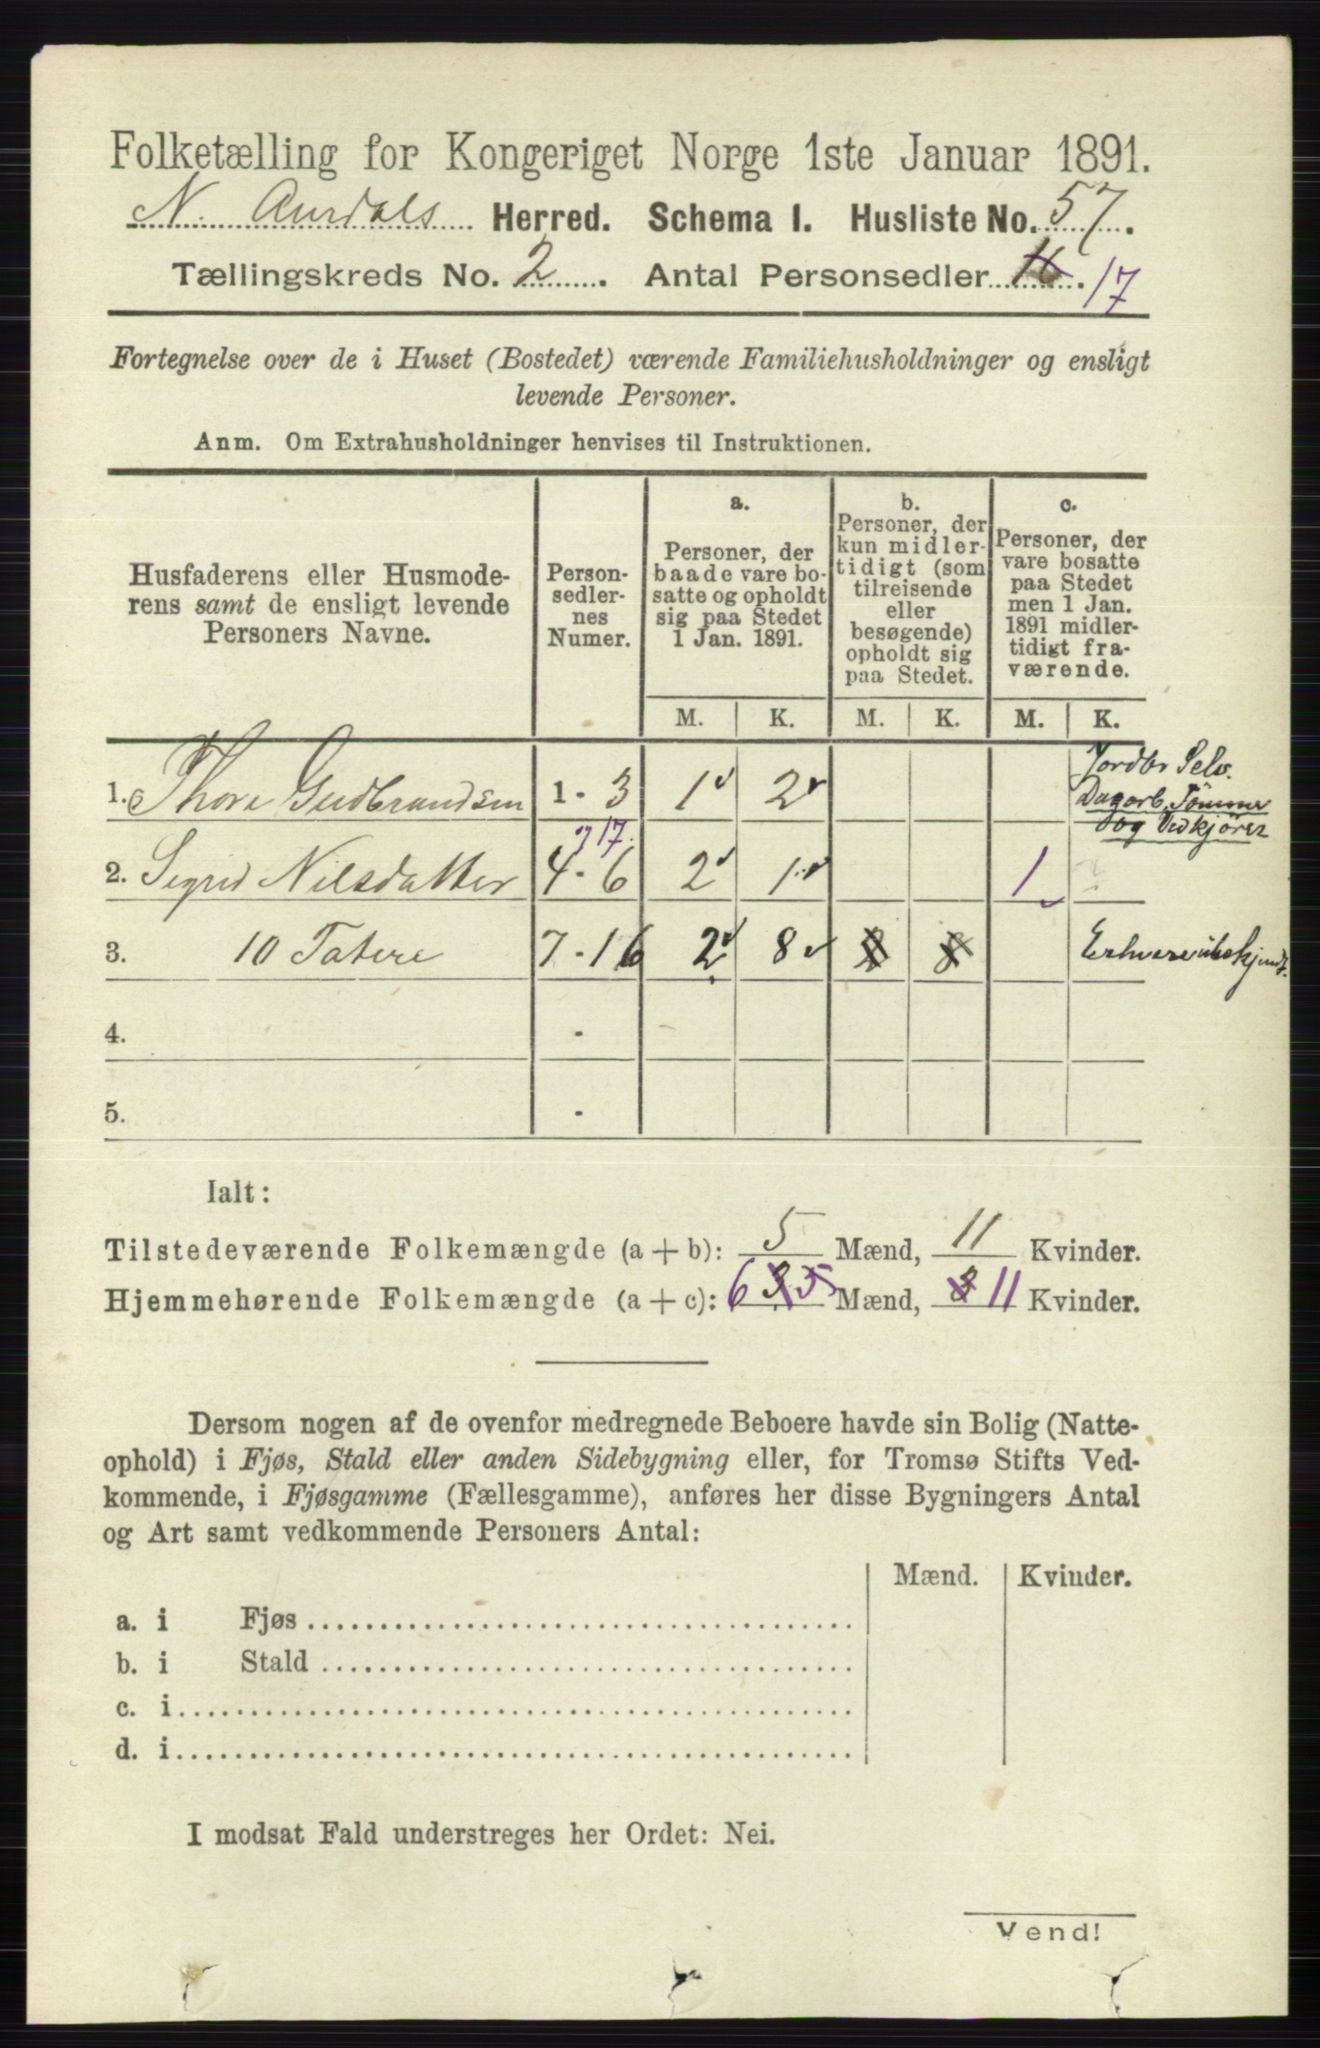 Folketælling for Kongeriget Norge 1ste Januar 1891.
N. Aurdals Herred. Schema I. Husliste No. 57.
Tællingskreds No. 2. Antal Personsedler 16. 17
Fortegnelse over de i Huset (Bostedet) værende Familiehusholdninger og ensligt
levende Personer.
Anm. Om Extrahusholdninger henvises til Instruktionen.
Husfaderens eller Husmode-
rens samt de ensligt levende
Personers Navne.
Person-
sedler-
nes
Numer.
a.
Personer, der
baade vare bo-
satte og opholdt
sig paa Stedet
1 Jan. 1891.
b.
Personer, der
kun midler-
tidigt (som
tilreisende
eller
besøgende)
opholdt sig
paa Stedet.
c.
Personer, der
vare bosatte
paa Stedet
men 1 Jan.
1891 midler-
tidigt fra-
værende.
M. K. M. K. M. K.
1. Thore Gudbrandsen 1 - 3 1 2 Jordbr Selv.
Dagarb, Tømmer
og Vedkjører
17.
2. Sigrid Nilsdatter 4 - 6 2 1 1
3. 10 Tatere 7 - 16 2 8
4. -
5. -
Ialt:
Tilstedeværende Folkemængde (a + b): 5 Mænd, 11 Kvinder.
Hjemmehørende Folkemængde (a + c): 6 3 5 Mænd, 3 11 Kvinder.
Dersom nogen af de ovenfor medregnede Beboere havde sin Bolig (Natte-
ophold) i Fjøs, Stald eller anden Sidebygning eller, for Tromsø Stifts Ved-
kommende, i Fjøsgamme (Fællesgamme), anføres her disse Bygningers Antal
og Art samt vedkommende Personers Antal:
Mænd. Kvinder.
a. i Fjøs
b. i Stald
c. i
d. i
I modsat Fald understreges her Ordet: Nei.
Vend!